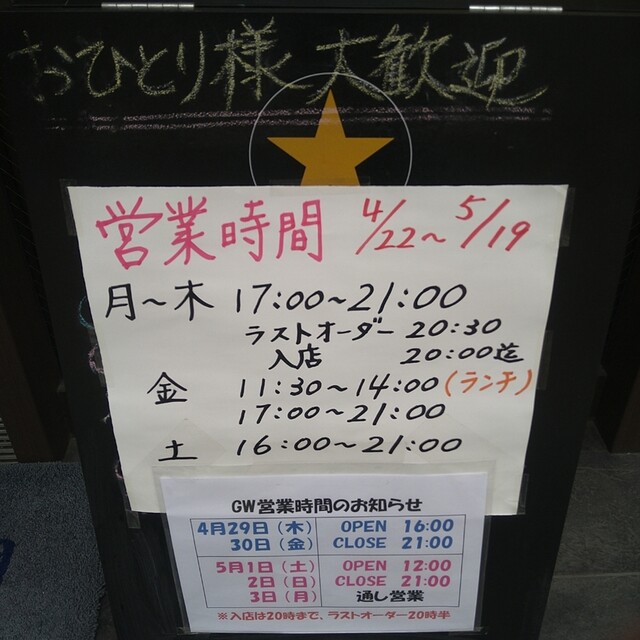 おひとり様大歓迎
営業時間 4/22〜5/19
月〜木 17:00〜21:00
ラストオーダー 20:30
入店 20:00迄
金 11:30〜14:00(ランチ)
17:00〜21:00
土 16:00〜21:00
GW営業時間のお知らせ
4月29日(木) OPEN 16:00
30日(金) CLOSE 21:00
5月1日(土) OPEN 12:00
2日(日) CLOSE 21:00
3日(月) 通し営業
※入店は20時まで、ラストオーダー20時半